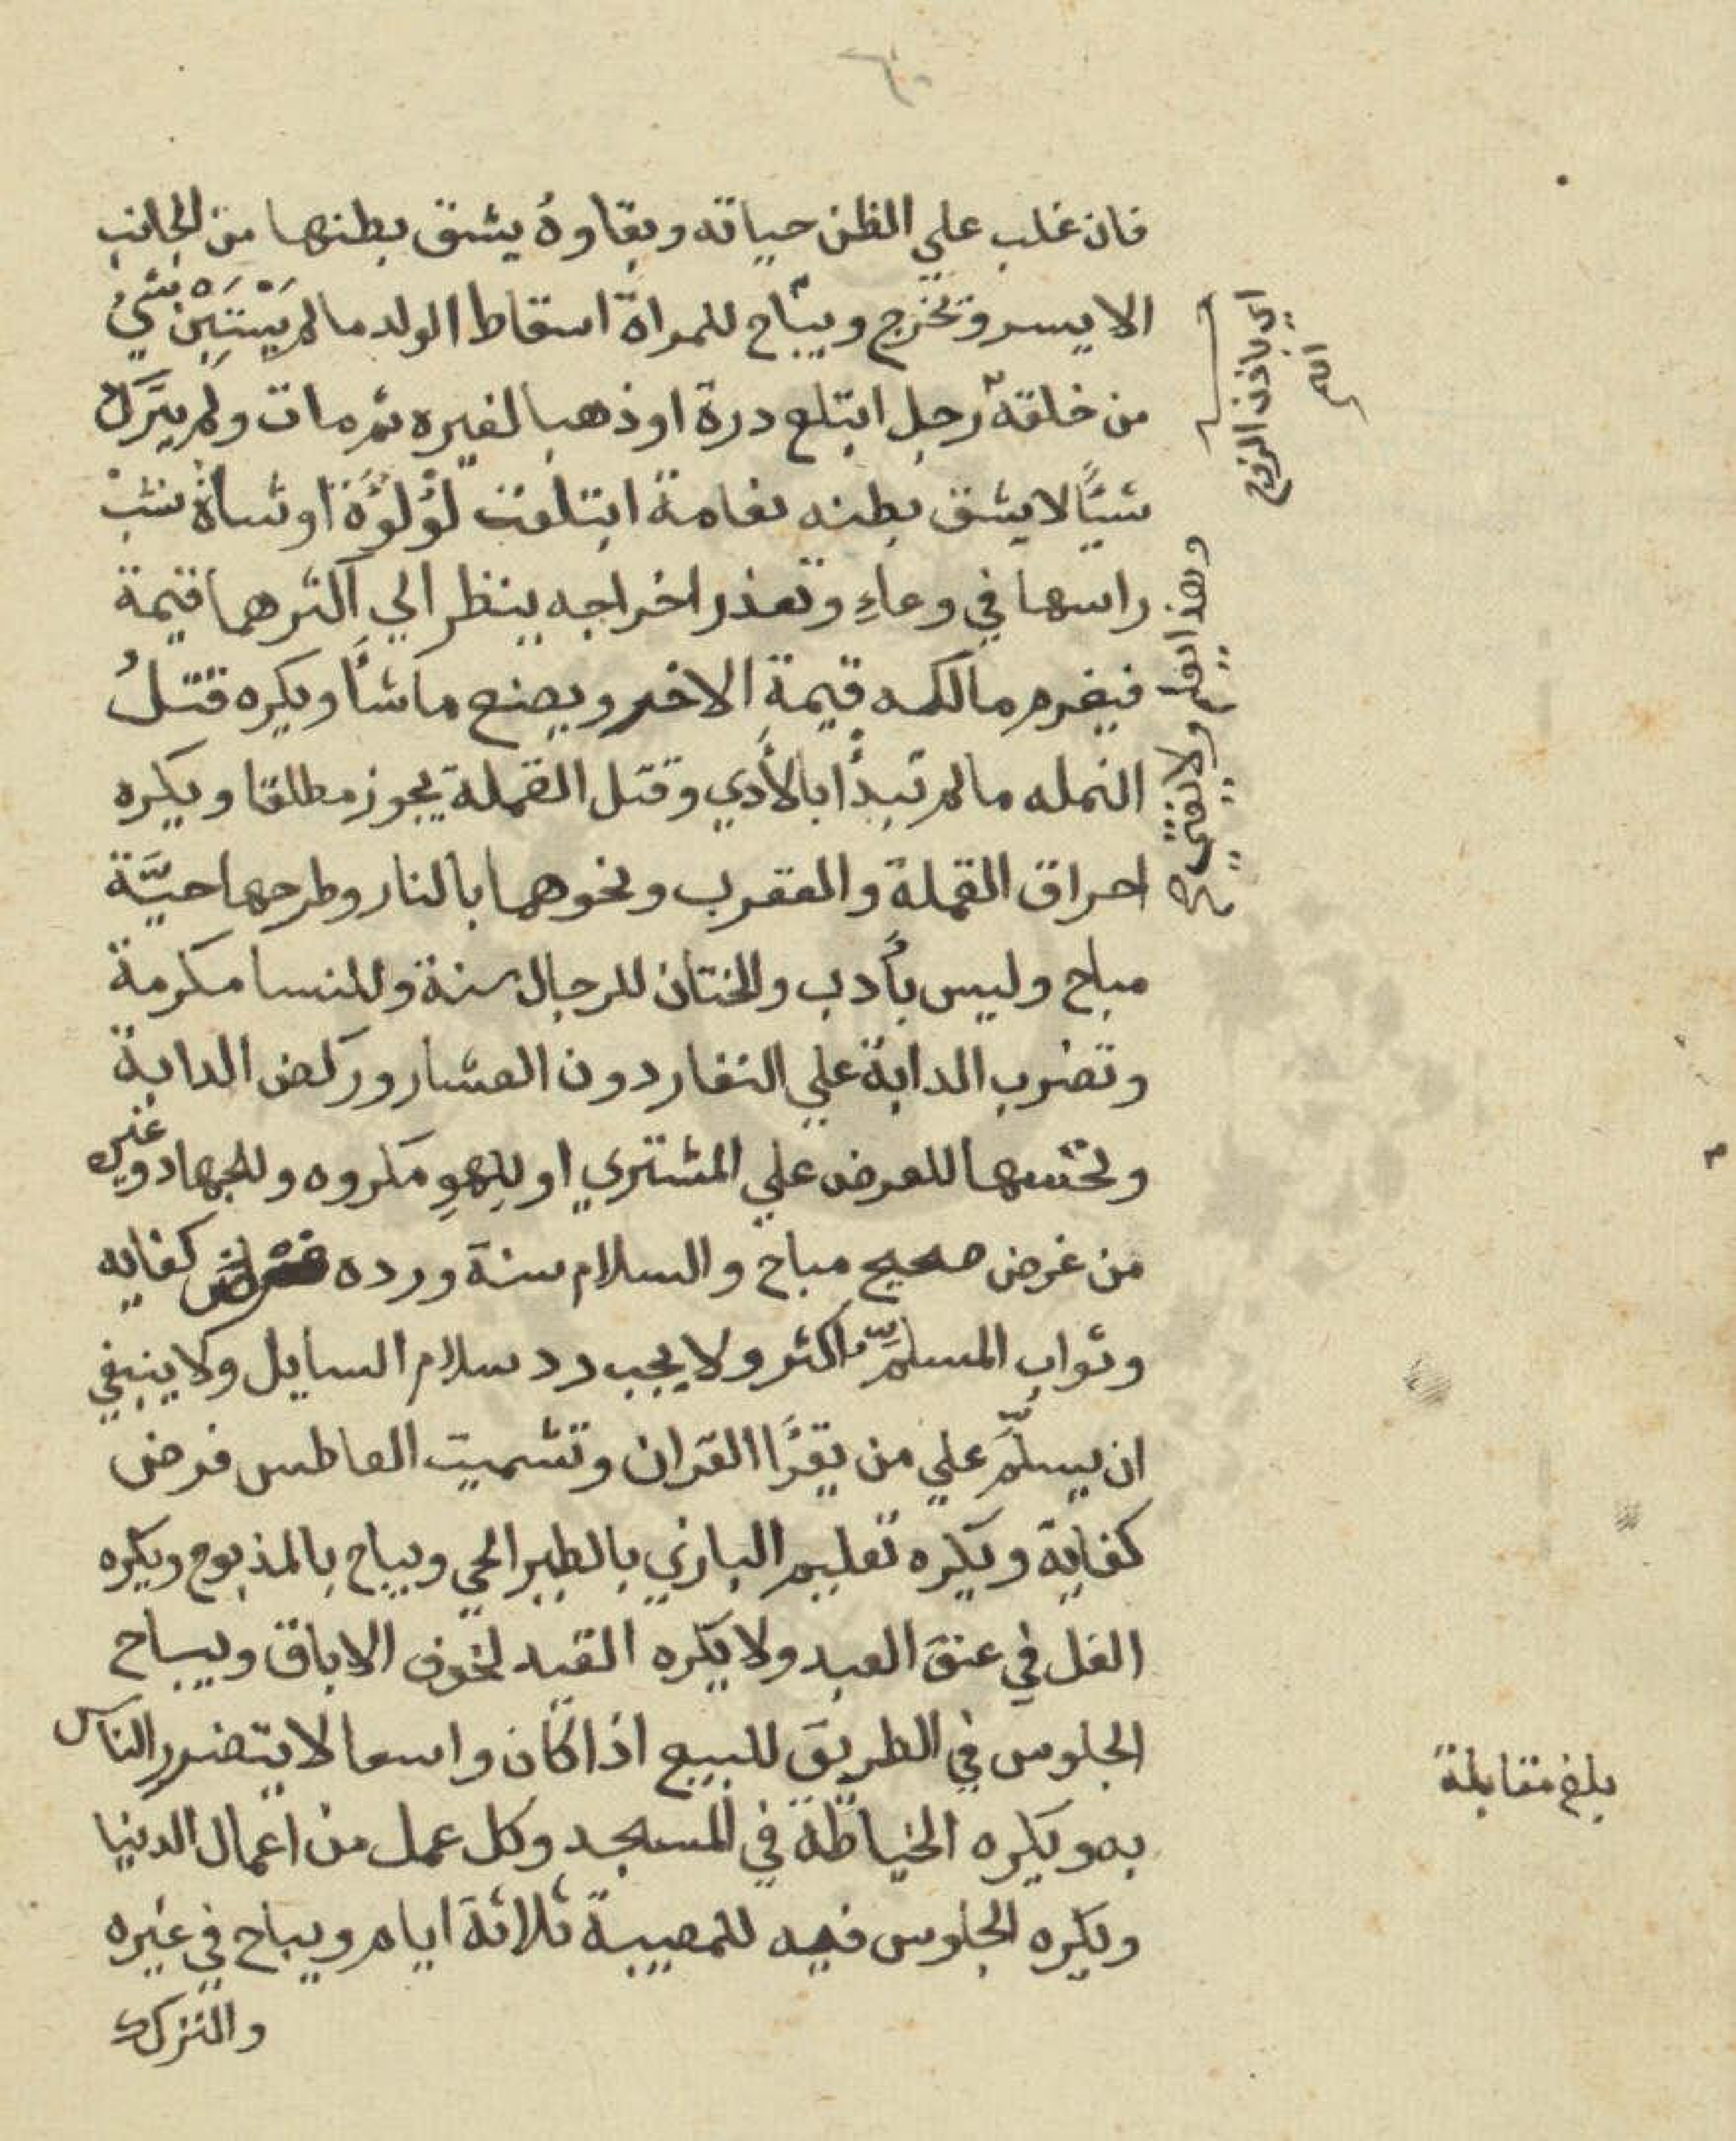 ٦٠
فان غلب علي الظن حياته وبقاوهُ يشق بطنها من الجانب
الايسر وتخرج ويباح للمراة اسقاط الولد ما لم يَسْتَبِنْ شيُ
من خلقه رجل ابتلع درة او ذهبا لغيره ثم مات ولم يترك
شيًا لا يشق بطنه نعامة ابتلعت لؤلؤة او شاة نشب
راسها في وعاءِ وتعذر اخراجه ينظر الي اكثرهما قيمة
فيغرم مالكه قيمةِ الاخر ويصنع ماشأ ويكره قتلُ
النمله ما لم تبدأ بالأذي وقتل القملة يجوز مطلقا ويكره
احراق القملة والعقرب ونحوهما بالنار وطرحها حيَّة
مباح وليس بأدب والختان للرجال سنة وللنسا مكرمة
وتضرب الدابة علي النفار دون العشار وركض الدابة
ونخسها للعرض علي المشتري او للهوِ مكروه وللجهاد وغيره
من غرض صحيح مباح والسلام سنة ورده فرض كفايه
وثواب المسلِّم اكثر ولا يجب رد سلام السايل ولا ينبغي
ان يسلِّم علي من يقرأ القران وتشميت العاطس فرض
كفاية ويكره تعليم البازي بالطير الحي ويباح بالمذبوح ويكره
الغل في عنق العبد ولا يكره القيد لخوف الاباق ويباح
الجلوس في الطريق للبيع اذا كان واسعا لا يتضرر الناس
به ويكره الخياطة في المسجد وكل عمل من اعمال الدنيا
ويكره الجلوس فيه للمصيبة ثلاثة ايام ويباح في غيره
والترك
اي باذن الزوج
وهذا ولا يفتي به
بلغ مقابلة